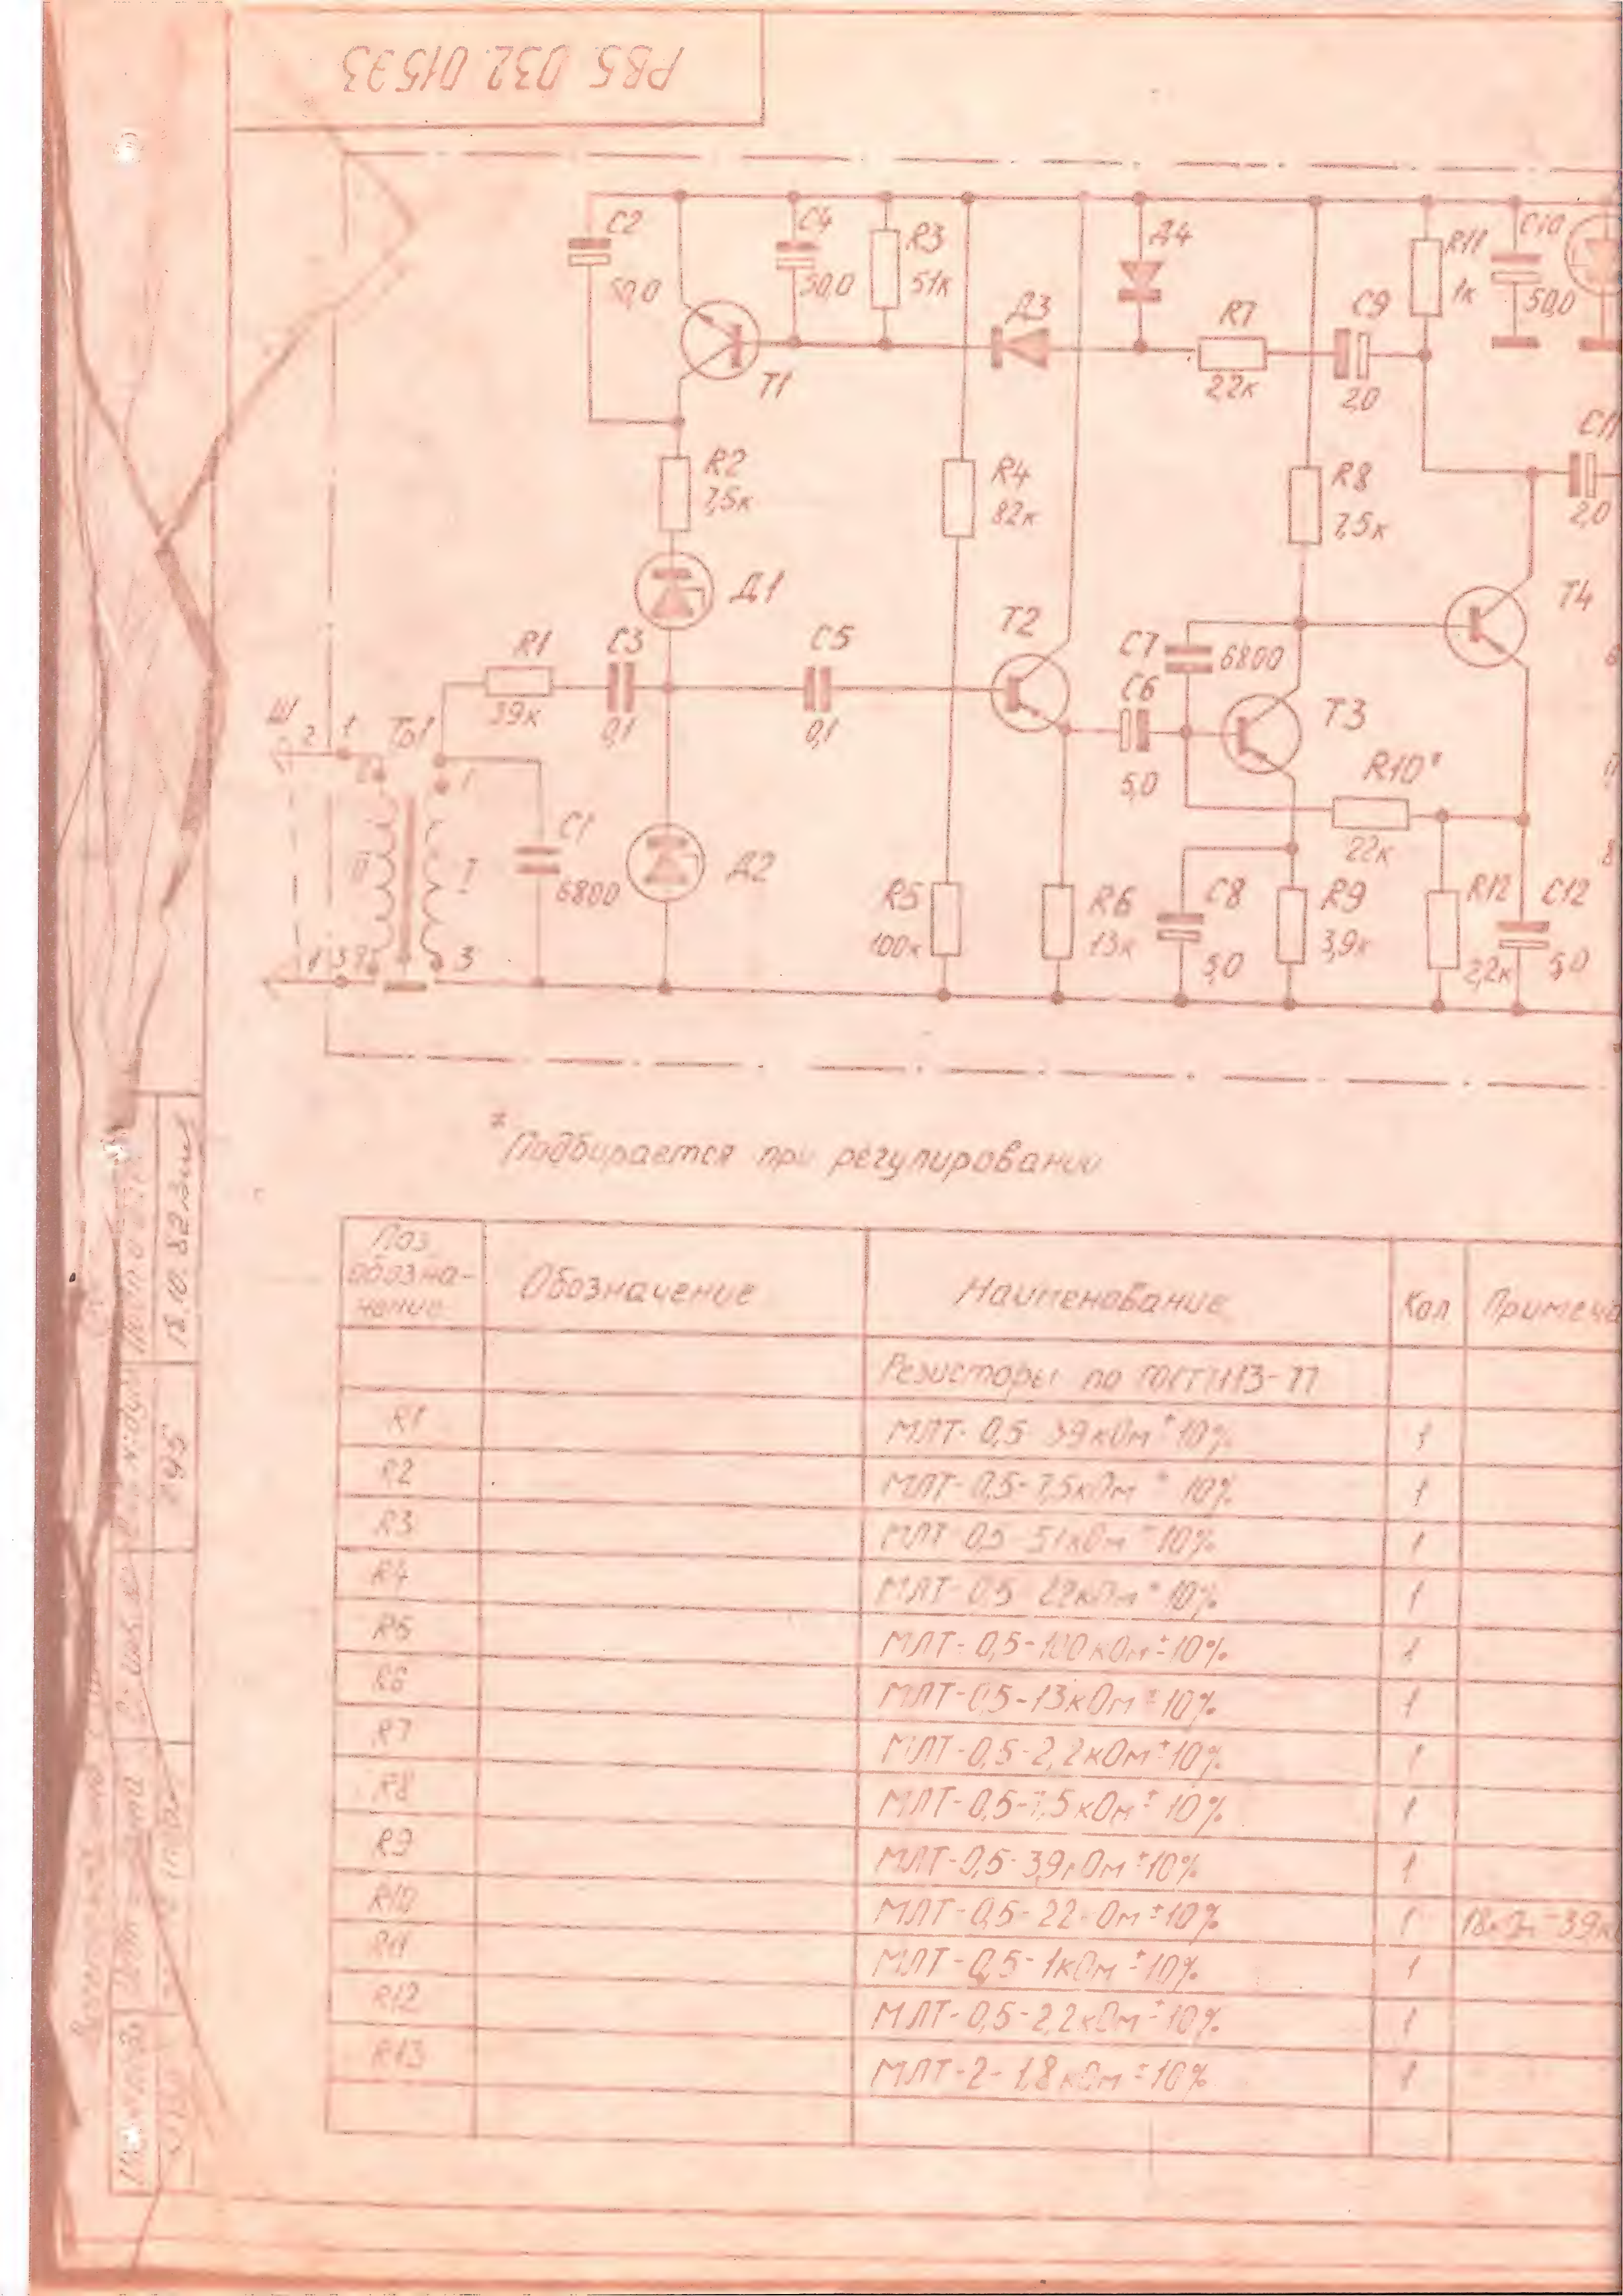 РВ5. 032. 015ЭЗ
C2
50,0
C4
50,0
R3
51к
Д4
R11
1к
C10
50,0
Д3
R7
2,2к
C9
2,0
T1
C11
2,0
R2
7,5к
R4
82к
R8
7,5к
Д1
T4
T2
R1
39к
C3
0,1
C5
0,1
C7
6800
C6
5,0
T3
R10*
22к
Ш
2
1
Тр1
1
II
I
C1
6800
Д2
R5
100к
R6
13к
C8
5,0
R9
3,9к
R12
2,2к
C12
5,0
3
*Подбирается при регулировании
Поз. обозна-
чение
Обозначение
Наименование
Кол
Примеча
Резисторы по ГОСТ 7113-77
R1 МЛТ-0,5-39кОм±10% 1
R2 МЛТ-0,5-7,5кОм±10% 1
R3 МЛТ-0,5-51кОм±10% 1
R4 МЛТ-0,5 кОм±10% 1
R5 МЛТ-0,5-100кОм±10% 1
R6 МЛТ-0,5-13кОм±10% 1
R7 МЛТ-0,5-2,2кОм±10% 1
R8 МЛТ-0,5-7,5кОм±10% 1
R9 МЛТ-0,5-3,9кОм±10% 1
R10 МЛТ-0,5-22кОм±10% 1 18кОм-39к
R11 МЛТ-0,5-1кОм±10% 1
R12 МЛТ-0,5-2,2кОм±10% 1
R13 МЛТ-2-1,8кОм±10% 1
18.10.82